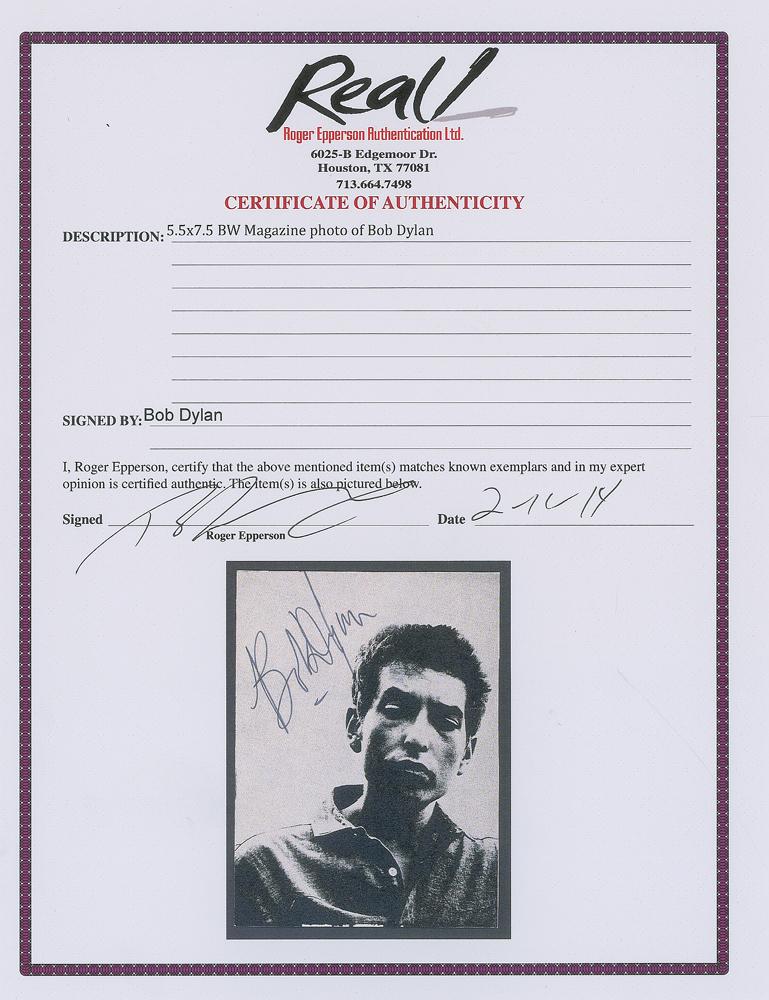 Real!
Roger Epperson Authentication Ltd.
6025-B Edgemoor Dr.
Houston, TX 77081
713.664.7498
CERTIFICATE OF AUTHENTICITY
DESCRIPTION: 5.5x7.5 BW Magazine photo of Bob Dylan
SIGNED BY: Bob Dylan
I, Roger Epperson, certify that the above mentioned item(s) matches known exemplars and in my expert
opinion is certified authentic. The item(s) is also pictured below.
Signed Date
Roger Epperson
Bob Dylan